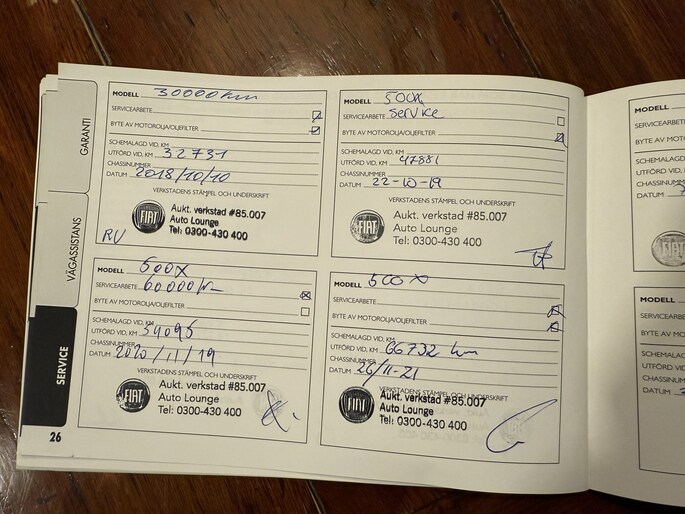 GARANTI
VÄGASSISTANS
SERVICE
26
MODELL 30000 km
SERVICEARBETE
BYTE AV MOTOROLJA/OLJEFILTER
SCHEMALAGD VID, KM
UTFÖRD VID, KM 32731
CHASSINUMMER
DATUM 2018/10/10
VERKSTADENS STÄMPEL OCH UNDERSKRIFT
FIAT
Aukt. verkstad #85.007
Auto Lounge
Tel: 0300-430 400
RU
MODELL 500X
SERVICEARBETE Service
BYTE AV MOTOROLJA/OLJEFILTER
SCHEMALAGD VID, KM
UTFÖRD VID, KM 47881
CHASSINUMMER
DATUM 22-10-19
VERKSTADENS STÄMPEL OCH UNDERSKRIFT
FIAT
Aukt. verkstad #85.007
Auto Lounge
Tel: 0300-430 400
MODELL 500X
60000 km
SERVICEARBETE
BYTE AV MOTOROLJA/OLJEFILTER
SCHEMALAGD VID, KM
UTFÖRD VID, KM 59095
CHASSINUMMER
DATUM 2020/11/19
VERKSTADENS STÄMPEL OCH UNDERSKRIFT
FIAT
Aukt. verkstad #85.007
Auto Lounge
Tel: 0300-430 400
MODELL 500X
SERVICEARBETE
BYTE AV MOTOROLJA/OLJEFILTER
SCHEMALAGD VID, KM
UTFÖRD VID, KM 66732 km
CHASSINUMMER
DATUM 26/11-21
VERKSTADENS STÄMPEL OCH UNDERSKRIFT
FIAT
Aukt. verkstad #85.007
Auto Lounge
Tel: 0300-430 400
MODELL
SERVICEARBE
BYTE AV MOT
SCHEMALAGD
UTFÖRD VID,
CHASSINUMM
DATUM
MODELL
SERVICEARBE
BYTE AV MO
SCHEMALAG
UTFÖRD VID
CHASSINUM
DATUM